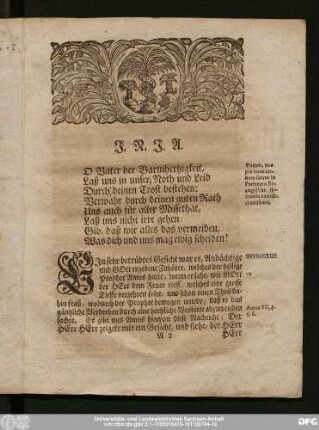 J. N. J. A.
O Vater der Barmhertzigkeit,
Laß uns in unser Noth und Leid
Durch deinen Trost bestehen:
Verwahr durch deinen guten Rath
Uns auch für aller Missethat,
Laß uns nicht irre gehen.
Gib, daß wir alles das vermeiden,
Was dich und uns mag ewig scheiden!
EIn sehr betrübtes Gesicht war es, Andächtige
und GOtt ergebene Zuhörer, welches der heilige
Prophet Amos hatte, wenn er sahe, wie GOtt
der HErr dem Feuer rieff, welches eine große
Tieffe verzehren solte, und schon einen Theil da-
hin fraß, wodurch der Prophet bewogen wurde, daß er das
gäntzliche Verderben durch eine hertzliche Vorbitte abzuwenden
suchte. Es gibt uns Amos hiervon diese Nachricht: Der
HErr HErr zeigete mir ein Gesicht, und siehe, der HErr
A 2
HErr
Exordium
Amos VII, 4.
5. 6.
Universitäts- und Landesbibliothek Sachsen-Anhalt